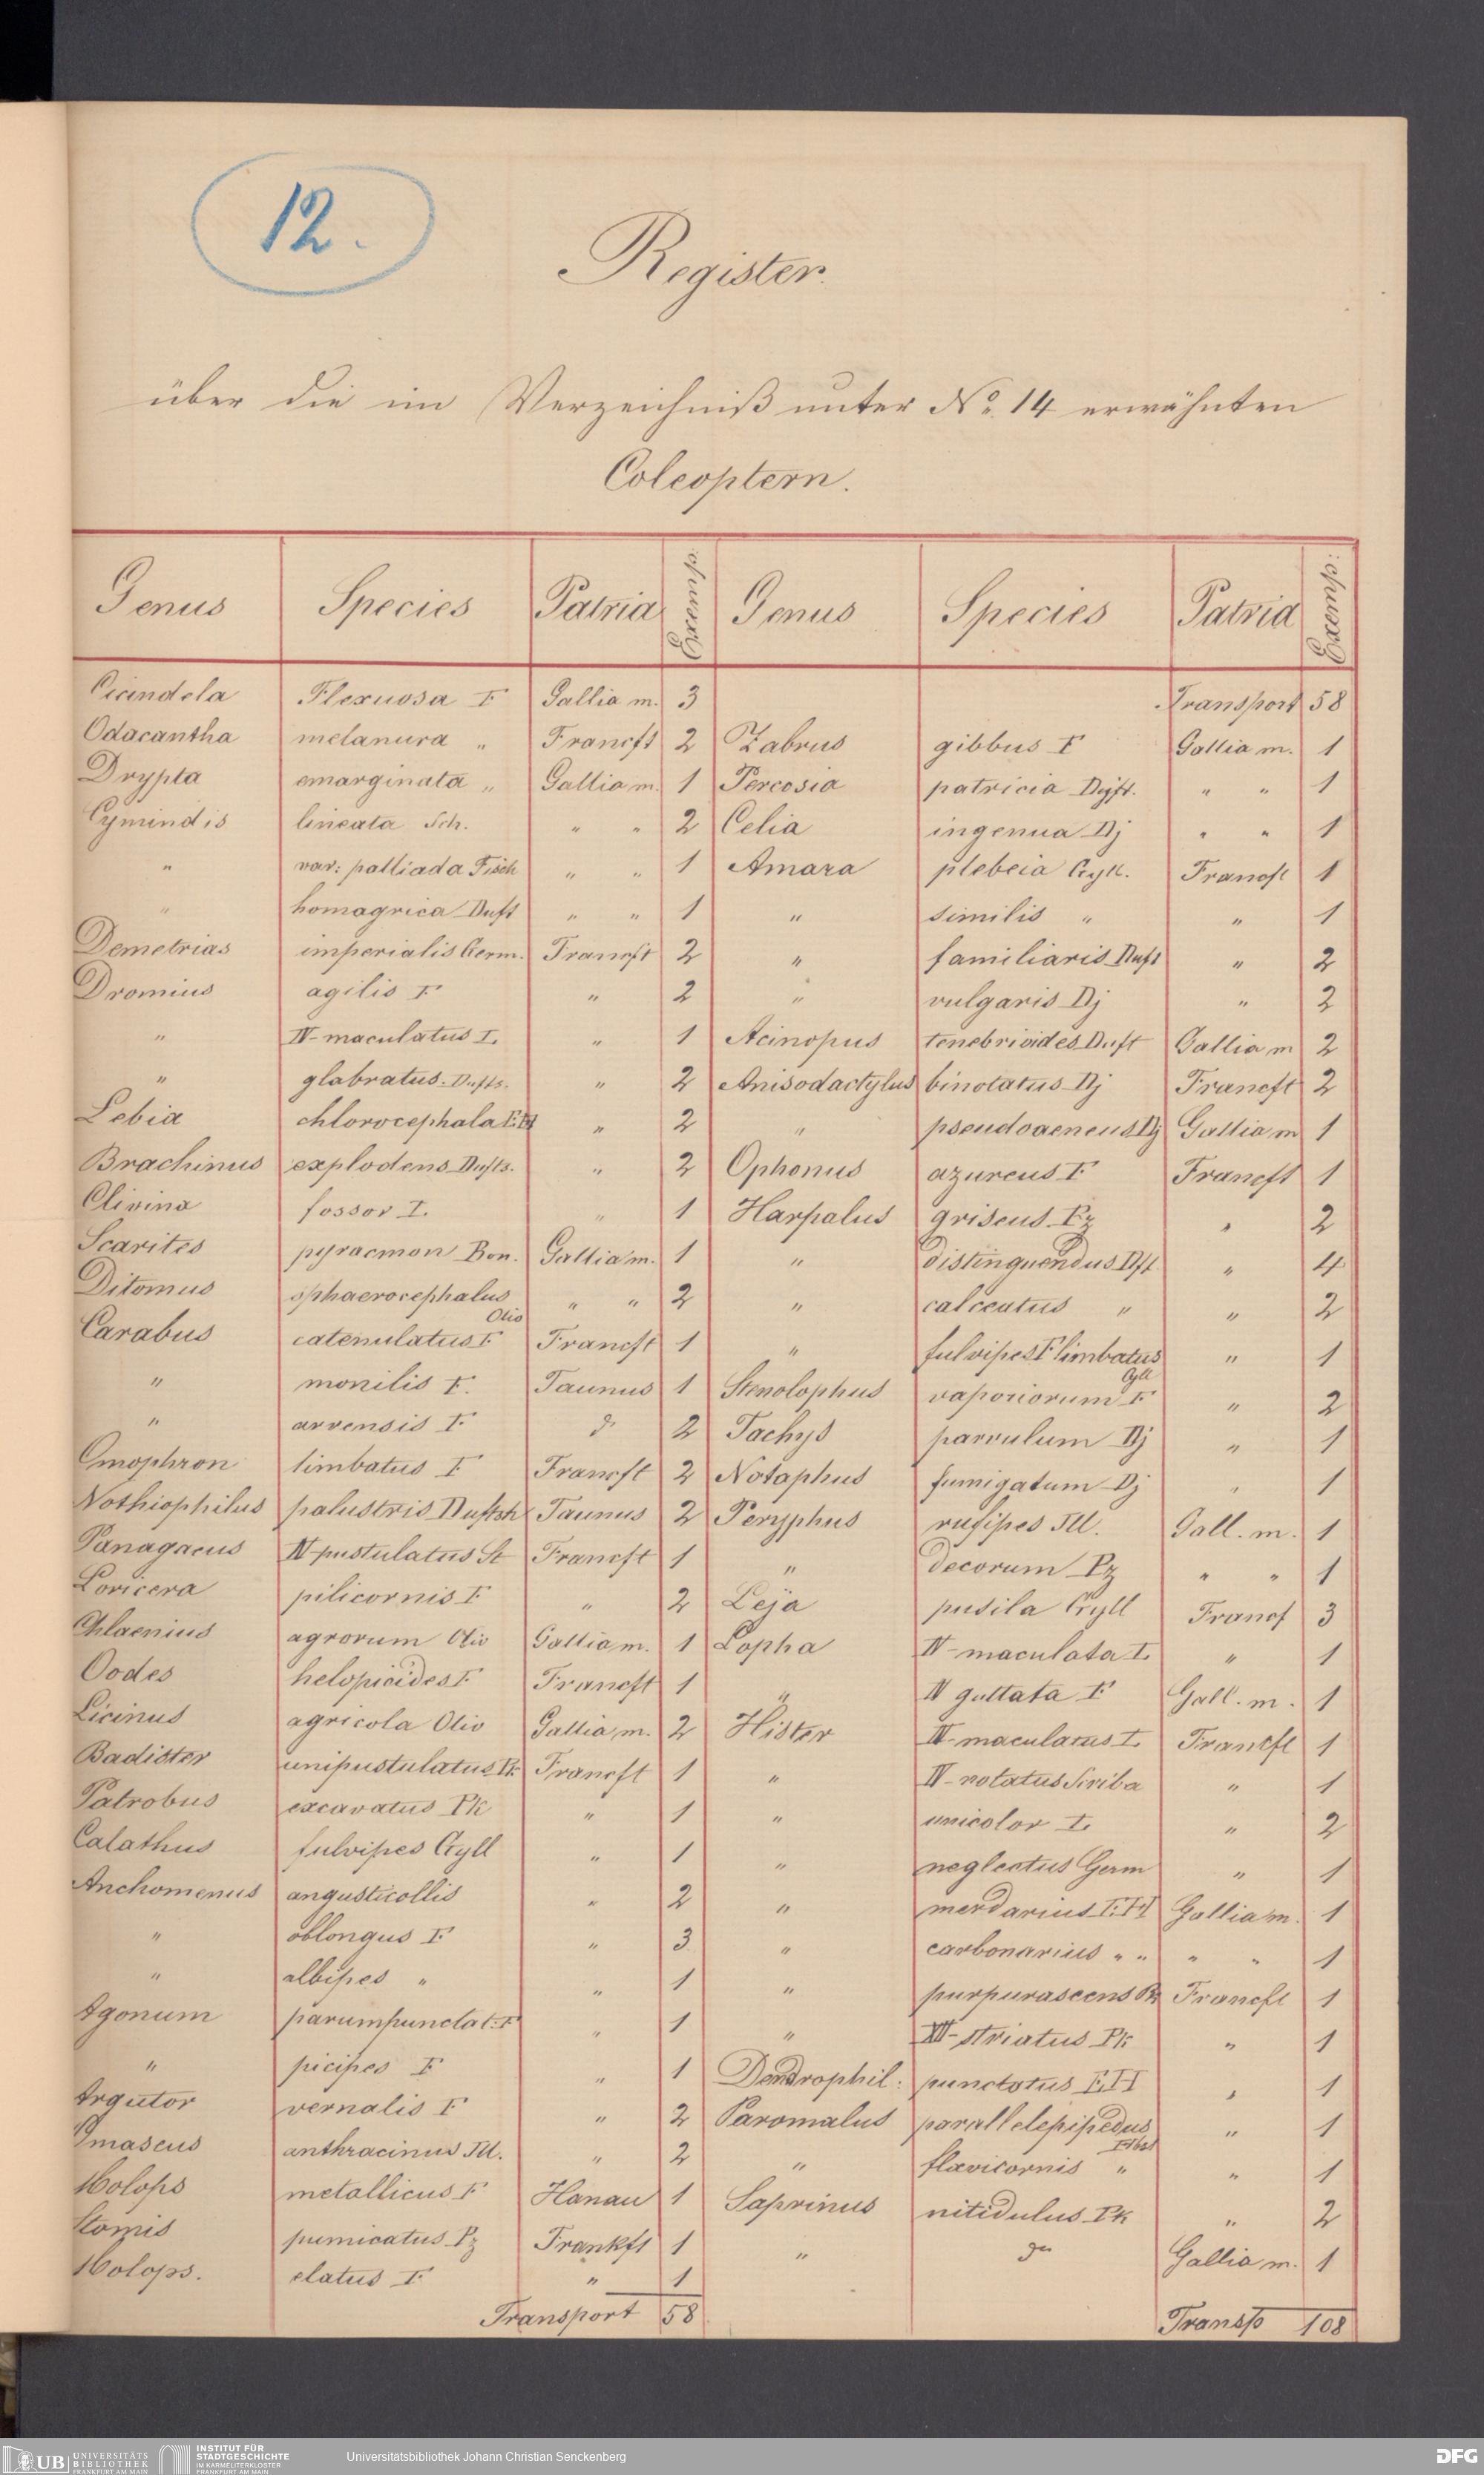 12.
Register.
über die im Verzeichniß unter No. 14 erwähnten
Coleoptern.
Genus Species Patria Exemp. Genus Species Patria Exemp:
Cicindela Flexuosa F Gallia m. 3
Odacantha melanura „ Francft 2
Drypta emarginata „ Gallia m. 1
Cymindis lineata Sch. „ „ 2
„ var: palliada Fisch „ „ 1
„ homagrica Duft „ „ 1
Demetrias imperialis Germ. Francft 2
Dromius agilis F „ 2
„ IV-maculatus L. „ 1
„ glabratus. Dufts. „ 2
Lebia chlorocephala E.H „ 2
Brachinus explodens Dufts. „ 2
Clivina fossor L. „ 1
Scarites pyracmon Bon. Gallia m. 1
Ditomus sphaerocephalus Oliv „ „ 2
Carabus catenulatus F Francft 1
„ monilis F. Taunus 1
„ arvensis F do 2
Omophron limbatus F Francft 2
Nothiophilus palustris Duftsh Taunus 2
Panagaeus IV-pustulatus St Francft 1
Loricera pilicornis F „ 2
Chlaenius agrorum Oliv Gallia m. 1
Oodes helopioides F Francft 1
Licinus agricola Oliv Gallia m. 2
Badister unipustulatus B. Francft 1
Patrobus excavatus Pk „ 1
Calathus fulvipes Gyll „ 1
Anchomenus angusticollis „ 2
„ oblongus F „ 3
„ albipes „ „ 1
Agonum parumpunctat: F „ 1
„ picipes F „ 1
Argutor vernalis F „ 2
Omaseus anthracinus Ill. „ 2
Molops metallicus F Hanau 1
Stomis pumicatus Pz Frankft 1
Molops. elatus F „ 1
Transport 58
Transport 58
Zabrus gibbus F Gallia m. 1
Percosia patricia Dft. „ „ 1
Celia ingenua Dj „ „ 1
Amara plebeia Gyll. Francft 1
„ similis „ „ 1
„ familiaris Duft „ 2
„ vulgaris Dj „ 2
Acinopus tenebrioides Duft Gallia m 2
Anisodactylus binotatus Dj Francft 2
„ pseudoaeneus Dj Gallia m 1
Ophonus azureus F Francft 1
Harpalus griseus Pz „ 2
„ distinguendus Dft „ 4
„ calceatus „ „ 2
„ fulvipes F limbatus Gyll „ 1
Stenolophus vaporiorum F „ 2
Tachys parvulum Dj „ 1
Notaphus fumigatum Dj „ 1
Peryphus rufipes Ill. Gall. m. 1
„ decorum Pz „ „ 1
Leja pusila Gyll Francf 3
Lopha IV-maculata L „ 1
„ IV guttata F Gall. m. 1
Hister IV-maculatus L Frankft 1
„ IV-notatus Scriba „ 1
„ unicolor L. „ 2
„ neglectus Germ „ 1
„ merdarius E.H Gallia m. 1
„ carbonarius „ „ „ „ 1
„ purpurascens Pz Francft 1
„ XII-striatus Pk „ 1
Dendrophil: punctatus E.H „ 1
Paromalus parallelepipedus Hbst „ 1
„ flavicornis „ „ 1
Saprinus nitidulus Pk „ 2
„ do Gallia m. 1
Transp 108
UB UNIVERSITÄTS
BIBLIOTHEK
FRANKFURT AM MAIN
INSTITUT FÜR
STADTGESCHICHTE
IM KARMELITERKLOSTER
FRANKFURT AM MAIN
Universitätsbibliothek Johann Christian Senckenberg
DFG